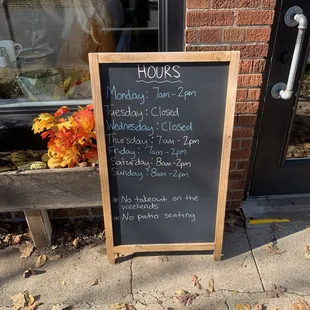 HOURS
Monday: 7am-2pm
Tuesday: Closed
Wednesday: Closed
Thursday: 7am-2pm
Friday: 7am-2pm
Saturday: 8am-2pm
Sunday: 8am-2pm
* No takeout on the
weekends
* No patio seating